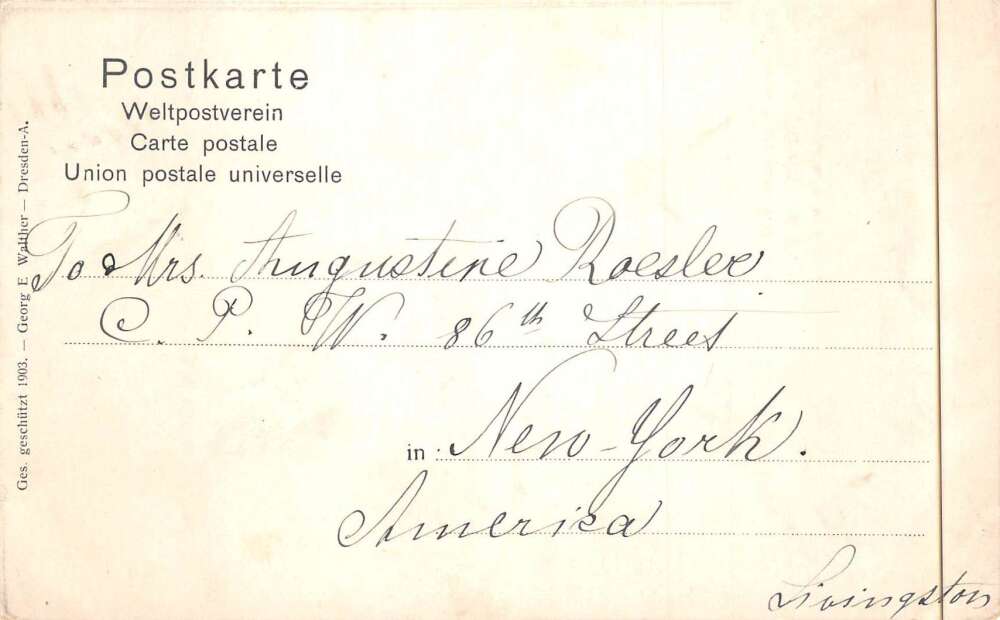 Postkarte
Weltpostverein
Carte postale
Union postale universelle
Ges. geschützt 1903. — Georg E Walther — Dresden-A.
To Mrs. Augustine Roesler
C. P. W. 86th Street
in: New-York.
America
Livingston